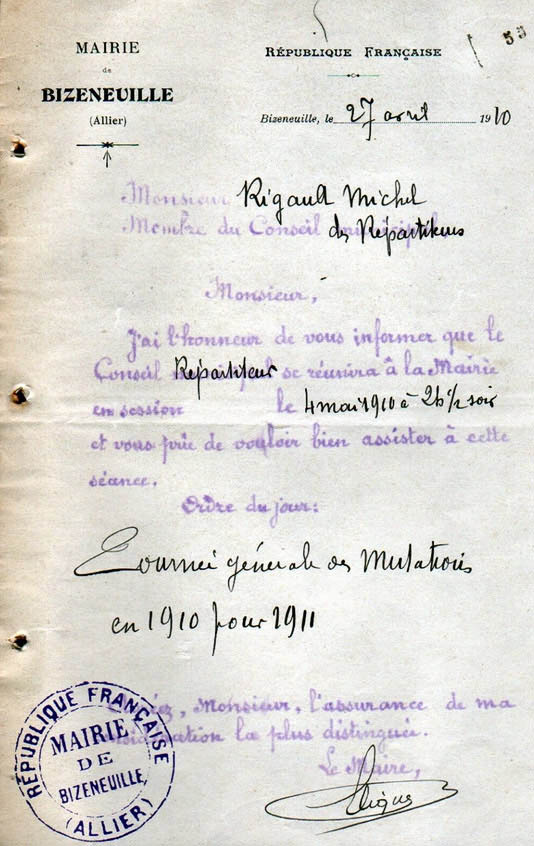 MAIRIE
de
BIZENEUILLE
(Allier)
RÉPUBLIQUE FRANÇAISE
Bizeneuille, le 27 avril 1910
Monsieur Rigault Michel
Membre du Conseil municipal des Répartiteurs
Monsieur,
J'ai l'honneur de vous informer que le
Conseil Répartiteur se réunira à la Mairie
en session le 4 mai 1910 à 2h 1/2 soir
et vous prie de vouloir bien assister à cette
séance.
Ordre du jour:
Tournée générale des Mutations
en 1910 pour 1911
, Monsieur, l'assurance de ma
considération la plus distinguée.
Le Maire,
RÉPUBLIQUE FRANÇAISE
MAIRIE
DE
BIZENEUILLE,
(ALLIER)